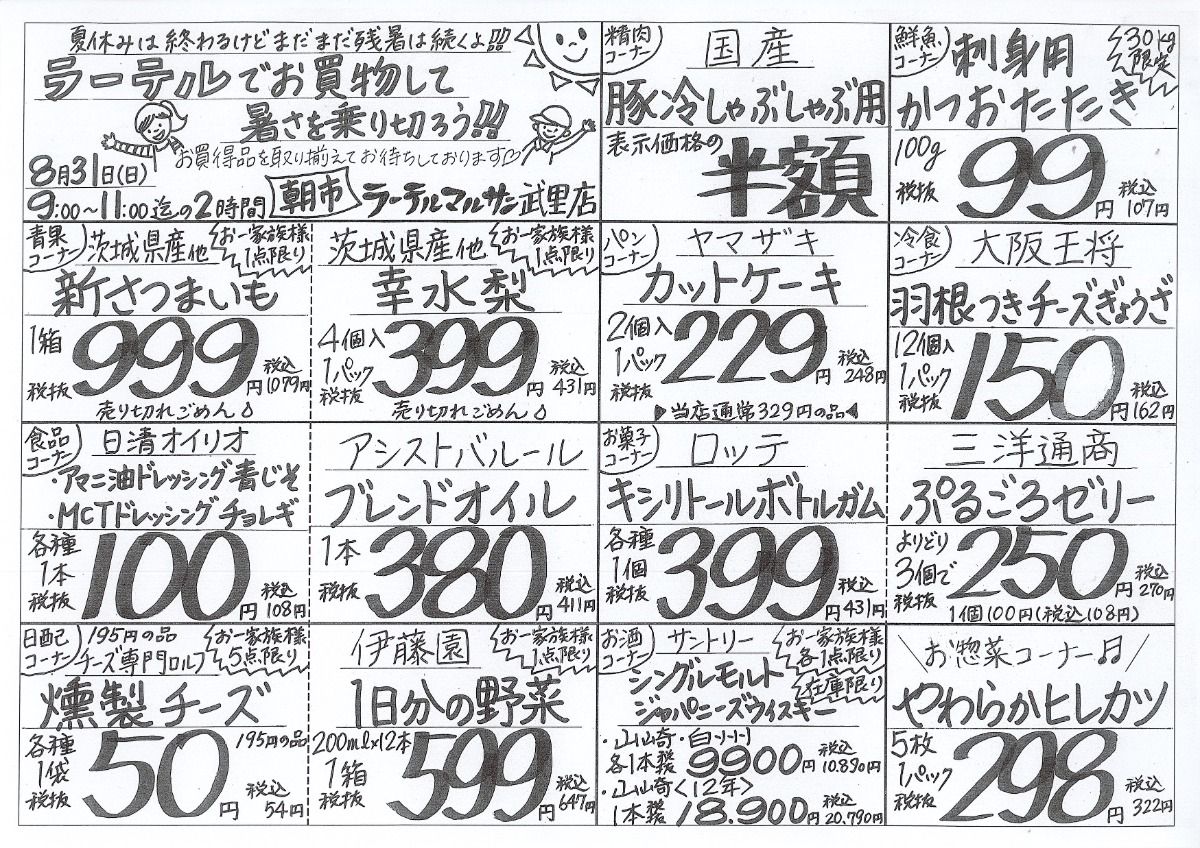 夏休みは終わるけどまだまだ残暑は続くよ!!
ラーテルでお買物して
暑さを乗り切ろう!!!
お買得品を取り揃えてお待ちしております♡
8月31日(日)
9:00〜11:00迄の2時間 朝市 ラーテルマルサン武里店
精肉コーナー
国産
豚冷しゃぶしゃぶ用
表示価格の
半額
鮮魚コーナー
刺身用
30kg限定
かつおたたき
100g
税抜
99円
税込
107円
青果コーナー
茨城県産他
お一家族様
1点限り
新さつまいも
1箱
税抜
999円
税込
1079円
売り切れごめん
茨城県産他
お一家族様
1点限り
幸水梨
4個入
1パック
税抜
399円
税込
431円
売り切れごめん
パンコーナー
ヤマザキ
カットケーキ
2個入
1パック
税抜
229円
税込
248円
▶当店通常329円の品◀
冷食コーナー
大阪王将
羽根つきチーズぎょうざ
12個入
1パック
税抜
150円
税込
162円
食品コーナー
日清オイリオ
・アマニ油ドレッシング青じそ
・MCTドレッシングチョレギ
各種
1本
税抜
100円
税込
108円
アシストバルール
ブレンドオイル
1本
税抜
380円
税込
411円
お菓子コーナー
ロッテ
キシリトールボトルガム
各種
1個
税抜
399円
税込
431円
三洋通商
ぷるごろゼリー
よりどり
3個で
税抜
250円
税込
270円
1個100円(税込108円)
日配コーナー
195円の品
チーズ専門ロルフ
お一家族様
5点限り
燻製チーズ
各種
1袋
税抜
50円
195円の品
税込
54円
伊藤園
お一家族様
1点限り
1日分の野菜
200ml×12本
1箱
税抜
599円
税込
647円
お酒コーナー
サントリー
お一家族様
各1点限り
在庫限り
シングルモルト
ジャパニーズウィスキー
・山崎・白州
各1本税抜 9900円 税込 10.890円
・山崎〈12年〉
1本税抜 18.900円 税込 20.790円
お惣菜コーナー♫
やわらかヒレカツ
5枚
1パック
税抜
298円
税込
322円